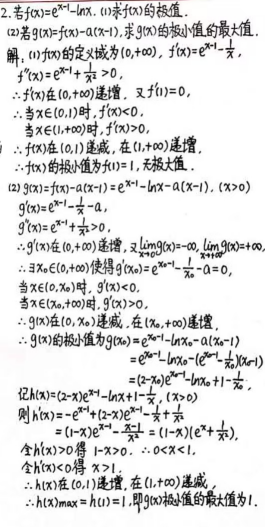 2.若f(x)=e^{x-1}-lnx. (1)求f(x)的极值.
(2)若g(x)=f(x)-a(x-1),求g(x)的极小值的最大值.
解:(1)f(x)的定义域为(0,+∞), f'(x)=e^{x-1}-1/x,
f''(x)=e^{x-1}+1/x²>0,
∴f'(x)在(0,+∞)递增. 又f'(1)=0,
∴当x∈(0,1)时,f'(x)<0,
当x∈(1,+∞)时,f'(x)>0,
∴f(x)在(0,1)递减,在(1,+∞)递增,
∴f(x)的极小值为f(1)=1,无极大值.
(2) g(x)=f(x)-a(x-1)=e^{x-1}-lnx-a(x-1), (x>0)
g'(x)=e^{x-1}-1/x-a,
g''(x)=e^{x-1}+1/x²>0,
∴g'(x)在(0,+∞)递增,又lim_{x→0}g'(x)=-∞, lim_{x→+∞}g'(x)=+∞,
∴∃x₀∈(0,+∞)使得g'(x₀)=e^{x₀-1}-1/x₀-a=0,
当x∈(0,x₀)时,g'(x)<0,
当x∈(x₀,+∞)时,g'(x)>0,
∴g(x)在(0,x₀)递减,在(x₀,+∞)递增,
∴g(x)的极小值为g(x₀)=e^{x₀-1}-lnx₀-a(x₀-1)
=e^{x₀-1}-lnx₀-(e^{x₀-1}-1/x₀)(x₀-1)
=(2-x₀)e^{x₀-1}-lnx₀+1-1/x₀,
记h(x)=(2-x)e^{x-1}-lnx+1-1/x, (x>0)
则h'(x)=-e^{x-1}+(2-x)e^{x-1}-1/x+1/x²
=(1-x)e^{x-1}-(x-1)/x²=(1-x)(e^x+1/x²),
令h'(x)>0得 1-x>0. ∴0<x<1.
令h'(x)<0得 x>1.
∴h(x)在(0,1)递增,在(1,+∞)递减,
∴h(x)max=h(1)=1,即g(x)极小值的最大值为1.